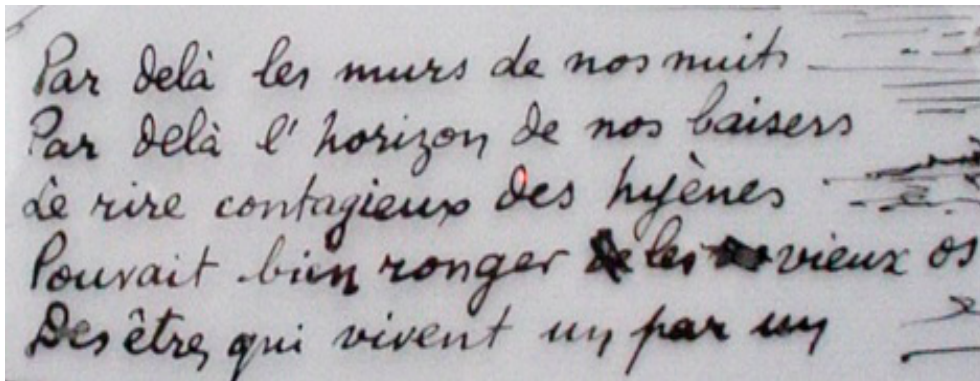 Par delà les murs de nos nuits
Par delà l'horizon de nos baisers
Le rire contagieux des hyènes
Pouvait bien ronger les vieux os
Des êtres qui vivent un par un